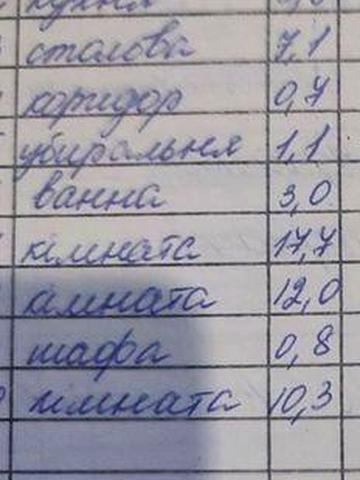 кухня
столова 7,1
коридор 0,7
убиральня 1,1
ванна 3,0
кімната 17,7
кімната 12,0
шафа 0,8
кімната 10,3